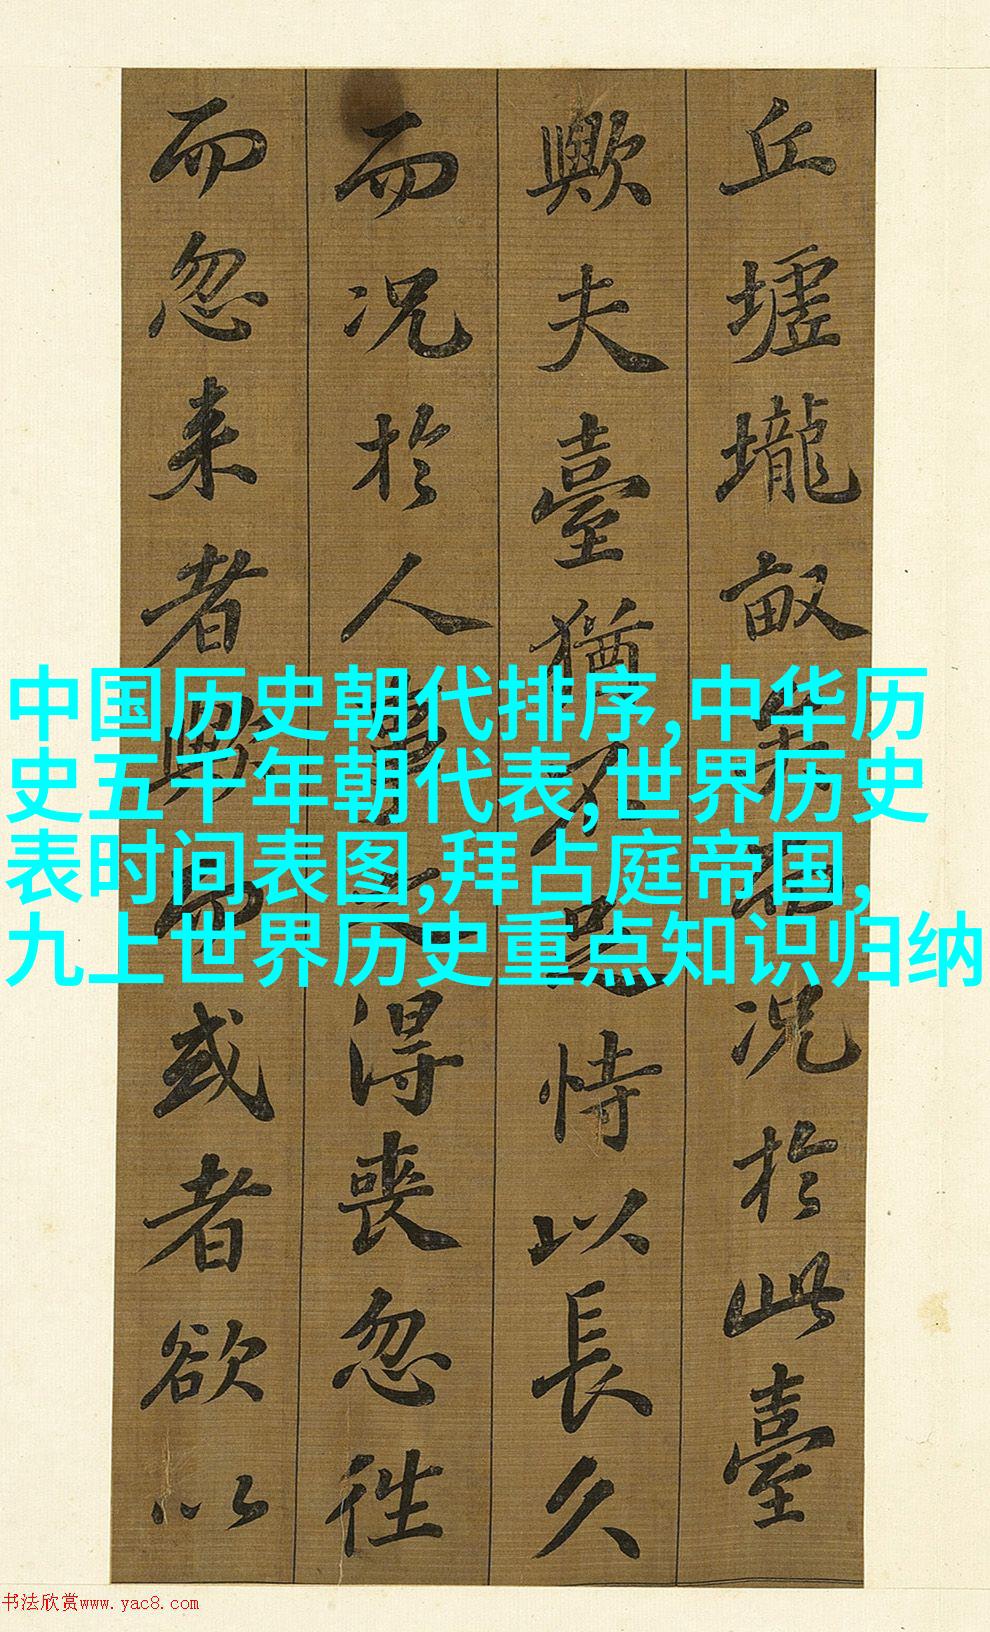 丘墟壠畝矣而況於此臺
歟夫臺猶不足恃以長久
而况於人事之得喪忽往
而忽来者歟而或者欲以
中国历史朝代排序,中华历
史五千年朝代表,世界历史
表时间表图,拜占庭帝国,
九上世界历史重点知识归纳
书法欣赏www.yac8.com